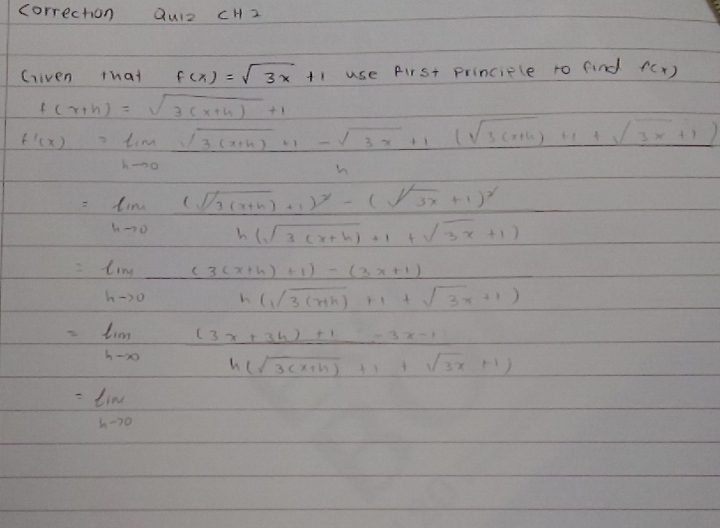 Correction Quiz CH 2
Given that f(x) = √3x +1 use first principle to find f(x)
f(x+h) = √3(x+h) +1
f'(x) = lim h→0 √3(x+h) +1 - √3x +1 (√3(x+h) +1 + √3x +1) / h
= lim h→0 (√3(x+h) +1)² - (√3x +1)² / h(√3(x+h) +1 + √3x +1)
= lim h→0 (3(x+h) +1) - (3x+1) / h(√3(x+h) +1 + √3x +1)
= lim h→0 (3x + 3h) +1 - 3x - 1 / h(√3(x+h) +1 + √3x +1)
= lim h→0